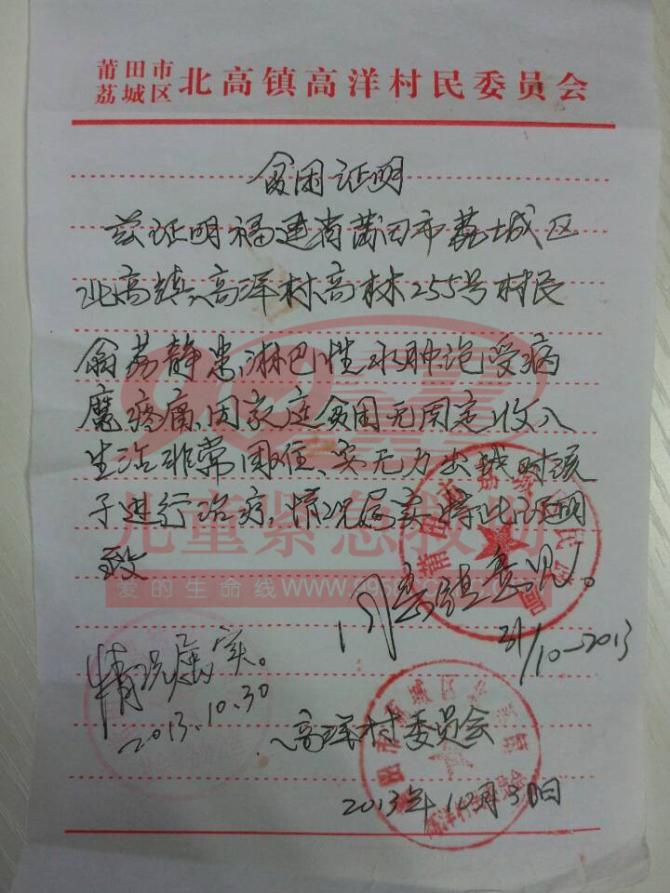 莆田市
荔城区 北高镇高洋村民委员会
贫困证明
兹证明福建省莆田市荔城区
北高镇高洋村高林255号村民
翁荔静患淋巴性水肿饱受病
魔疼痛,因家庭贫困无固定收入
生活非常困难、实无力出钱对孩
子进行治疗,情况属实特此证明
致
儿童紧急救助
爱的生命线www.995
同高镇意见。
31/10-2013
情况属实。
2013.10.30
高洋村委员会
2013年10月30日